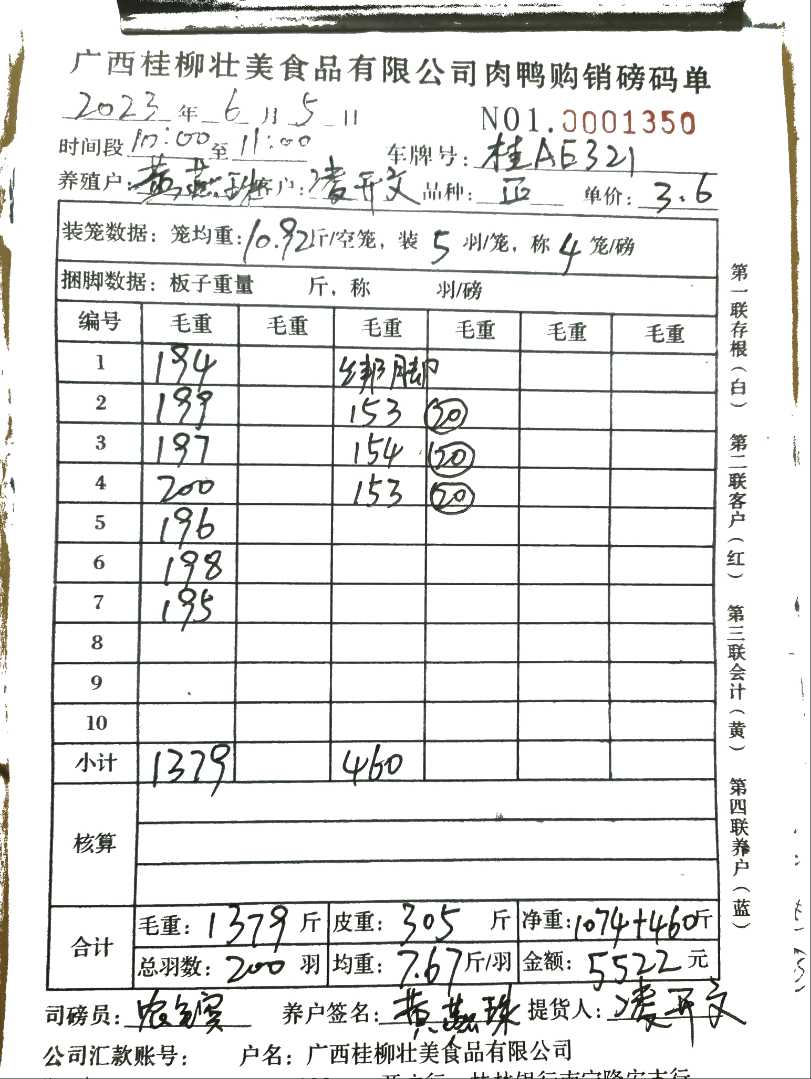 广西桂柳壮美食品有限公司肉鸭购销磅码单
2023年6月5日 NO1.0001350
时间段10:00至11:00 车牌号:桂AE321
养殖户:黄燕珠 客户:凌开文 品种: 单价:3.6
装笼数据:笼均重:10.92斤/空笼,装5羽/笼,称4笼/磅
捆脚数据:板子重量 斤,称 羽/磅
编号 毛重 毛重 毛重 毛重 毛重 毛重
1 194 绑脚
2 199 153 50
3 197 154 50
4 200 153 50
5 196
6 198
7 195
8
9
10
小计 1379 460
核算
合计 毛重:1379斤 皮重:305斤 净重:1074+460斤
总羽数:200羽 均重:7.67斤/羽 金额:5522元
司磅员: 养户签名:黄燕珠 提货人:凌开文
公司汇款账号: 户名:广西桂柳壮美食品有限公司
第一联存根(白) 第二联客户(红) 第三联会计(黄) 第四联养户(蓝)